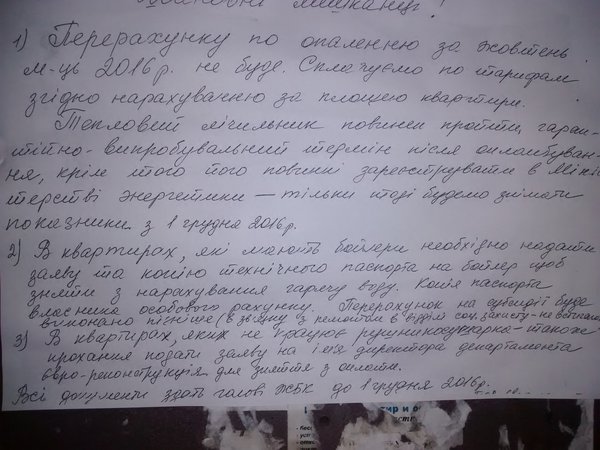 Шановні мешканці!
1) Перерахунку по опаленню за жовтень
м-ць 2016р. не буде. Сплачуємо по тарифам
згідно нарахуванню за площею квартири.
Тепловий лічильник повинен пройти гаран-
тійно-випробувальний термін після опломбуван-
ня, крім того його повинні зареєструвати в Міні
терстві энергетики — тільки тоді будемо знімати
показники з 1 грудня 2016р.
2) В квартирах, які мають бойлери необхідно надати
заяву та копію технічного паспорта на бойлер щоб
зняти з нарахування гарячу воду. Копія паспорта
власника особового рахунку. Перерахунок на субсидії буде
виконано пізніше (в звязку з ремонтом в відділі соц. захисту - не встигають)
3) В квартирах, яких не працює рушникосушарка - також
прохання подати заяву на ім'я директора департамента
Євро-реконструкція для зняття з оплати.
Всі документи здать голові ЖБК до 1 грудня 2016р.